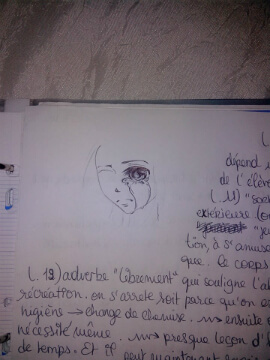 L
dépend
de l'élèv
(l. 11) "sort
extérieure (o
"je
tion, à s'amuse
que. le corps
l. 19) adverbe "librement" qui souligne l'a
récréation. on s'arrete soit parce qu'on e
hygiène → change de chemise. → ensuite
nécessité même. → presque leçon d'
de temps. Et il peut maintenant